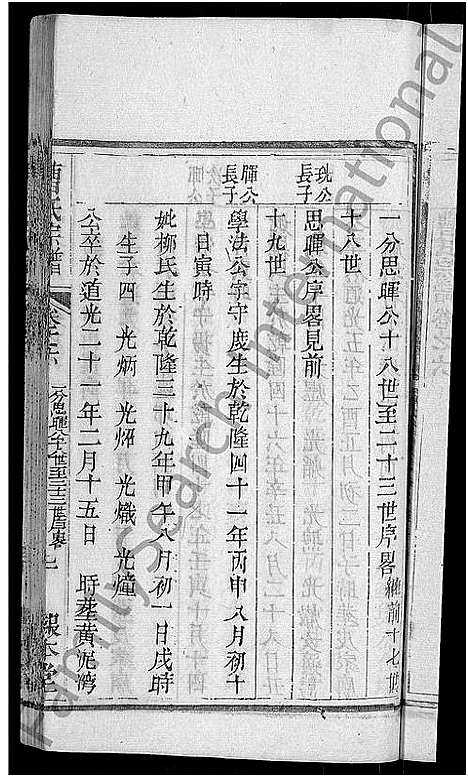 一分思暉公十八世至二十三世序畧 繼前十七世
十八世
珗公長子
思暉公序畧見前
十九世
暉公長子
學法公字守度生於乾隆四十一年丙申八月初十
日寅時
妣柳氏生於乾隆三十九年甲午八月初一日戌時
生子四 光炳 光炤 光熾 光燑
公卒於道光二十一年二月十五日 時塟黄泥灣
曹氏宗譜
卷之六
一分思暉公十八世至二十三世序畧
一
報本堂
FamilySearch International